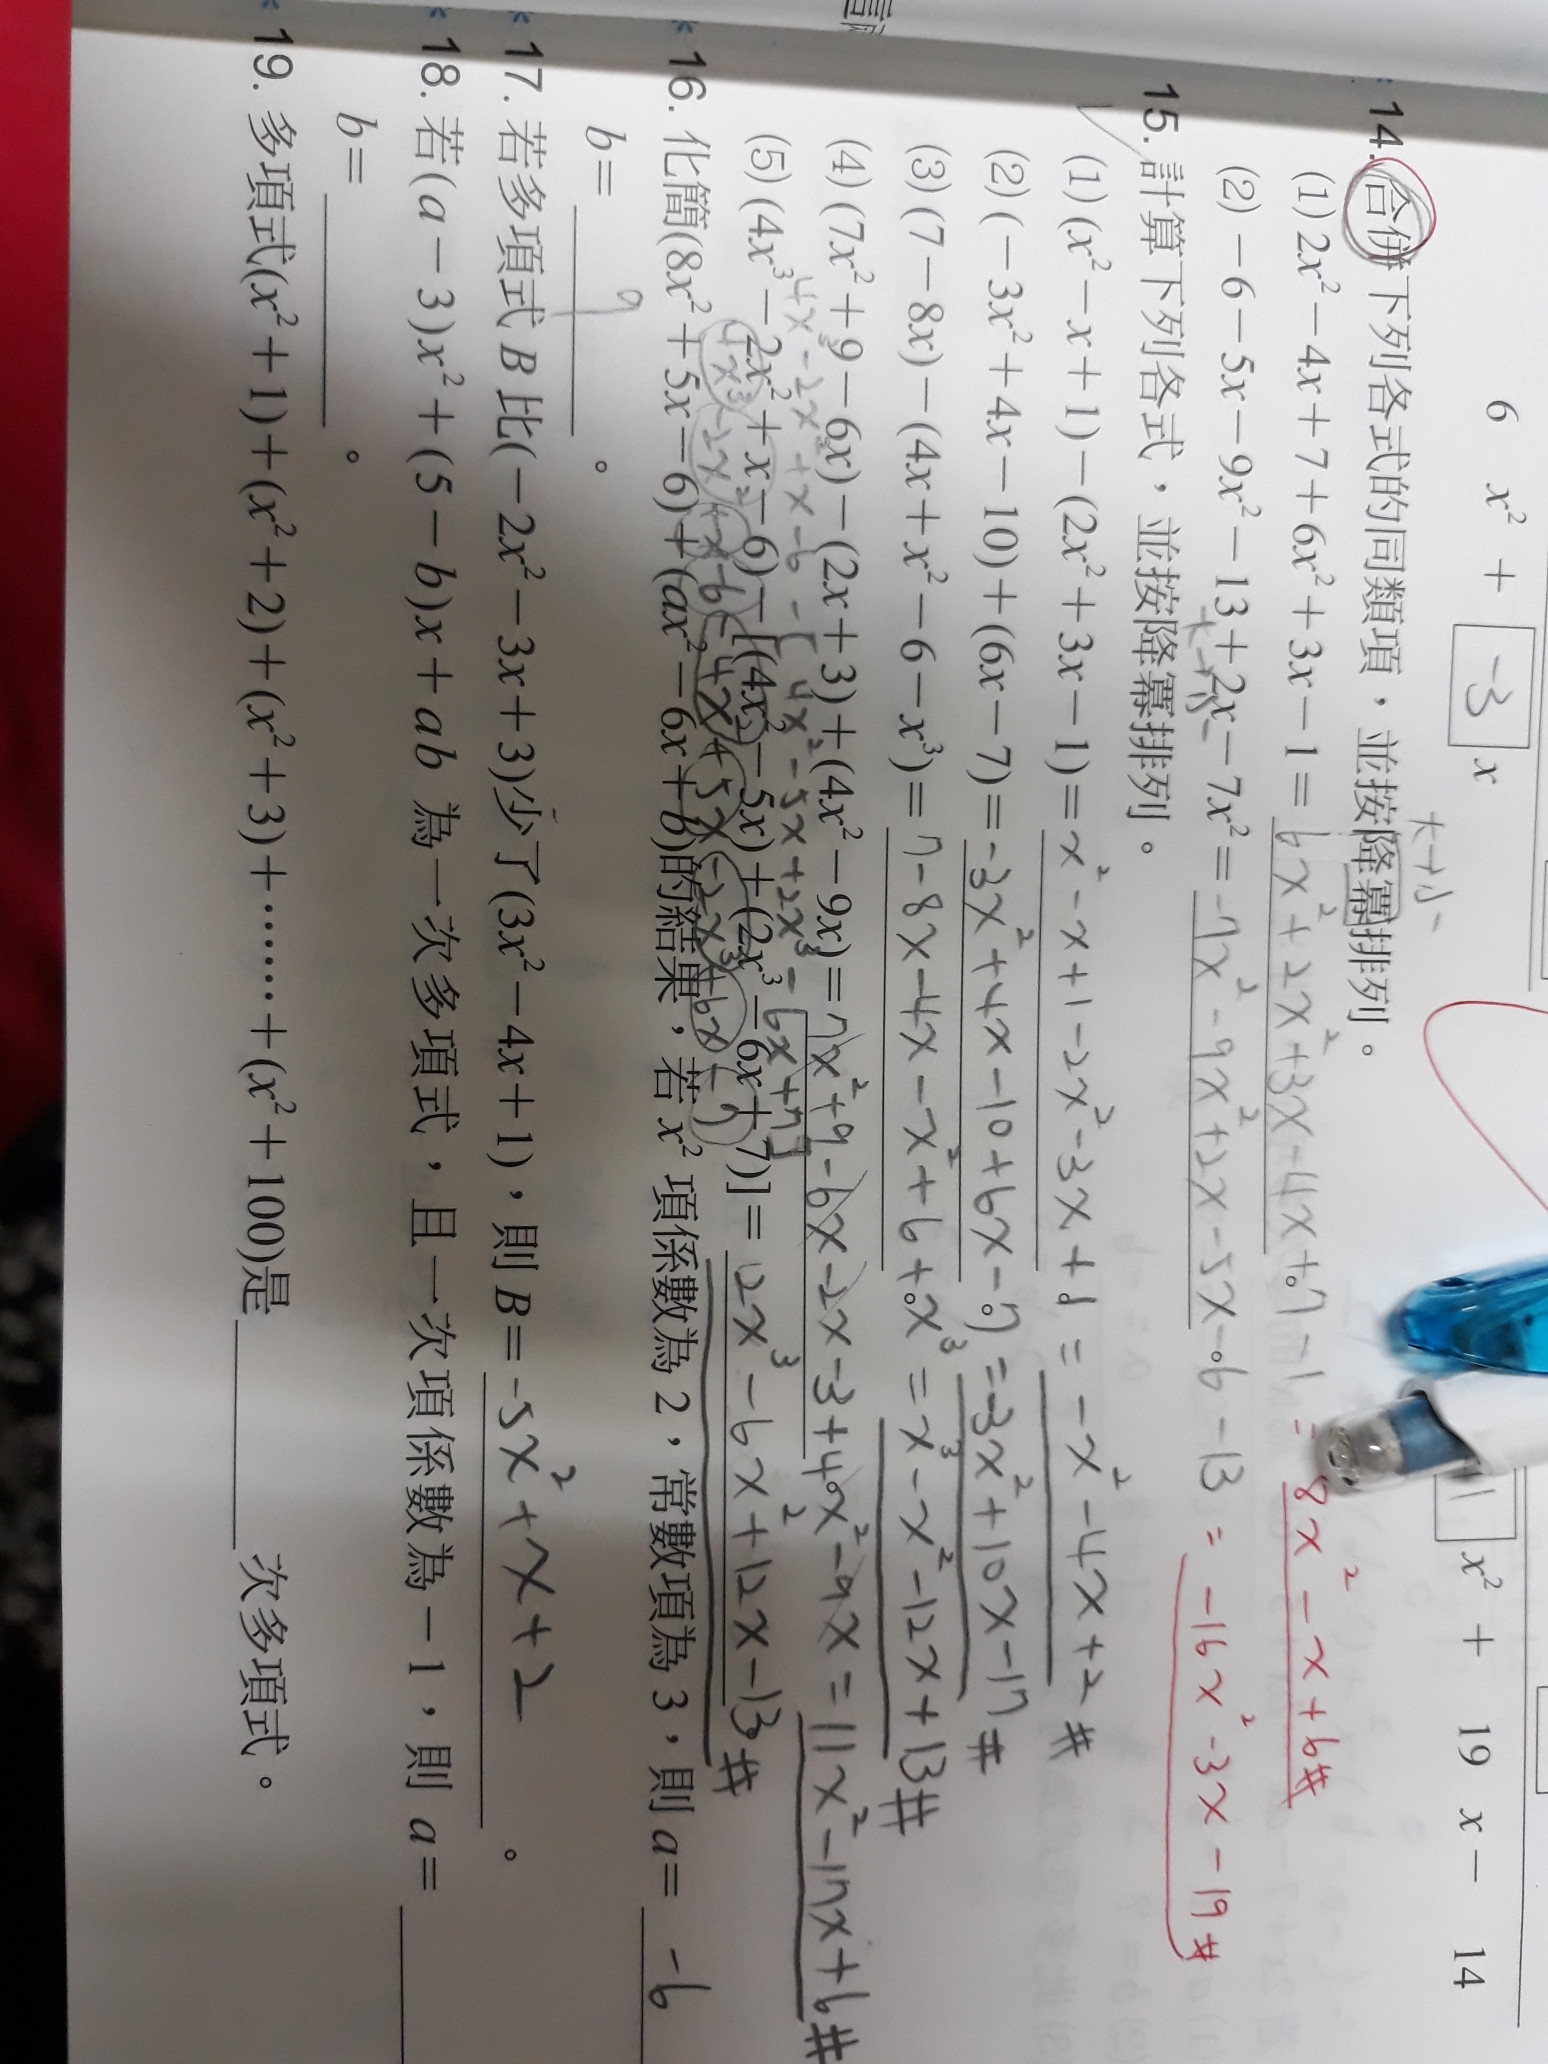 6 x² + -3 x
x² + 19 x - 14
大→小
14. 合併下列各式的同類項，並按降冪排列。
(1) 2x²-4x+7+6x²+3x-1= 6x²+2x²+3x-4x+7-1 = 8x²-x+6#
(2) -6-5x-9x²-13+2x-7x²= -7x²-9x²+2x-5x-6-13 = -16x²-3x-19#
15. 計算下列各式，並按降冪排列。
(1) (x²-x+1)-(2x²+3x-1)= x²-x+1-2x²-3x+1 = -x²-4x+2#
(2) (-3x²+4x-10)+(6x-7)= -3x²+4x-10+6x-7 = -3x²+10x-17#
(3) (7-8x)-(4x+x²-6-x³)= 7-8x-4x-x²+6+x³ = x³-x²-12x+13#
(4) (7x²+9-6x)-(2x+3)+(4x²-9x)= 7x²+9-6x-2x-3+4x²-9x = 11x²-17x+6#
4x³-2x²+x-6-[4x²-5x+2x³-6x+7]
(5) (4x³-2x²+x-6)-[(4x²-5x)+(2x³-6x+7)]= 2x³-6x²+12x-13#
4x³-2x²+x-6-4x²+5x-2x³+6x-7
16. 化簡(8x²+5x-6)+(ax²-6x+b)的結果，若 x² 項係數為 2，常數項為 3，則 a= -6
b= 9 。
17. 若多項式 B 比(-2x²-3x+3)少了(3x²-4x+1)，則 B= -5x²+x+2 。
18. 若(a-3)x²+(5-b)x+ab 為一次多項式，且一次項係數為-1，則 a=
b= 。
19. 多項式(x²+1)+(x²+2)+(x²+3)+……+(x²+100)是 次多項式。